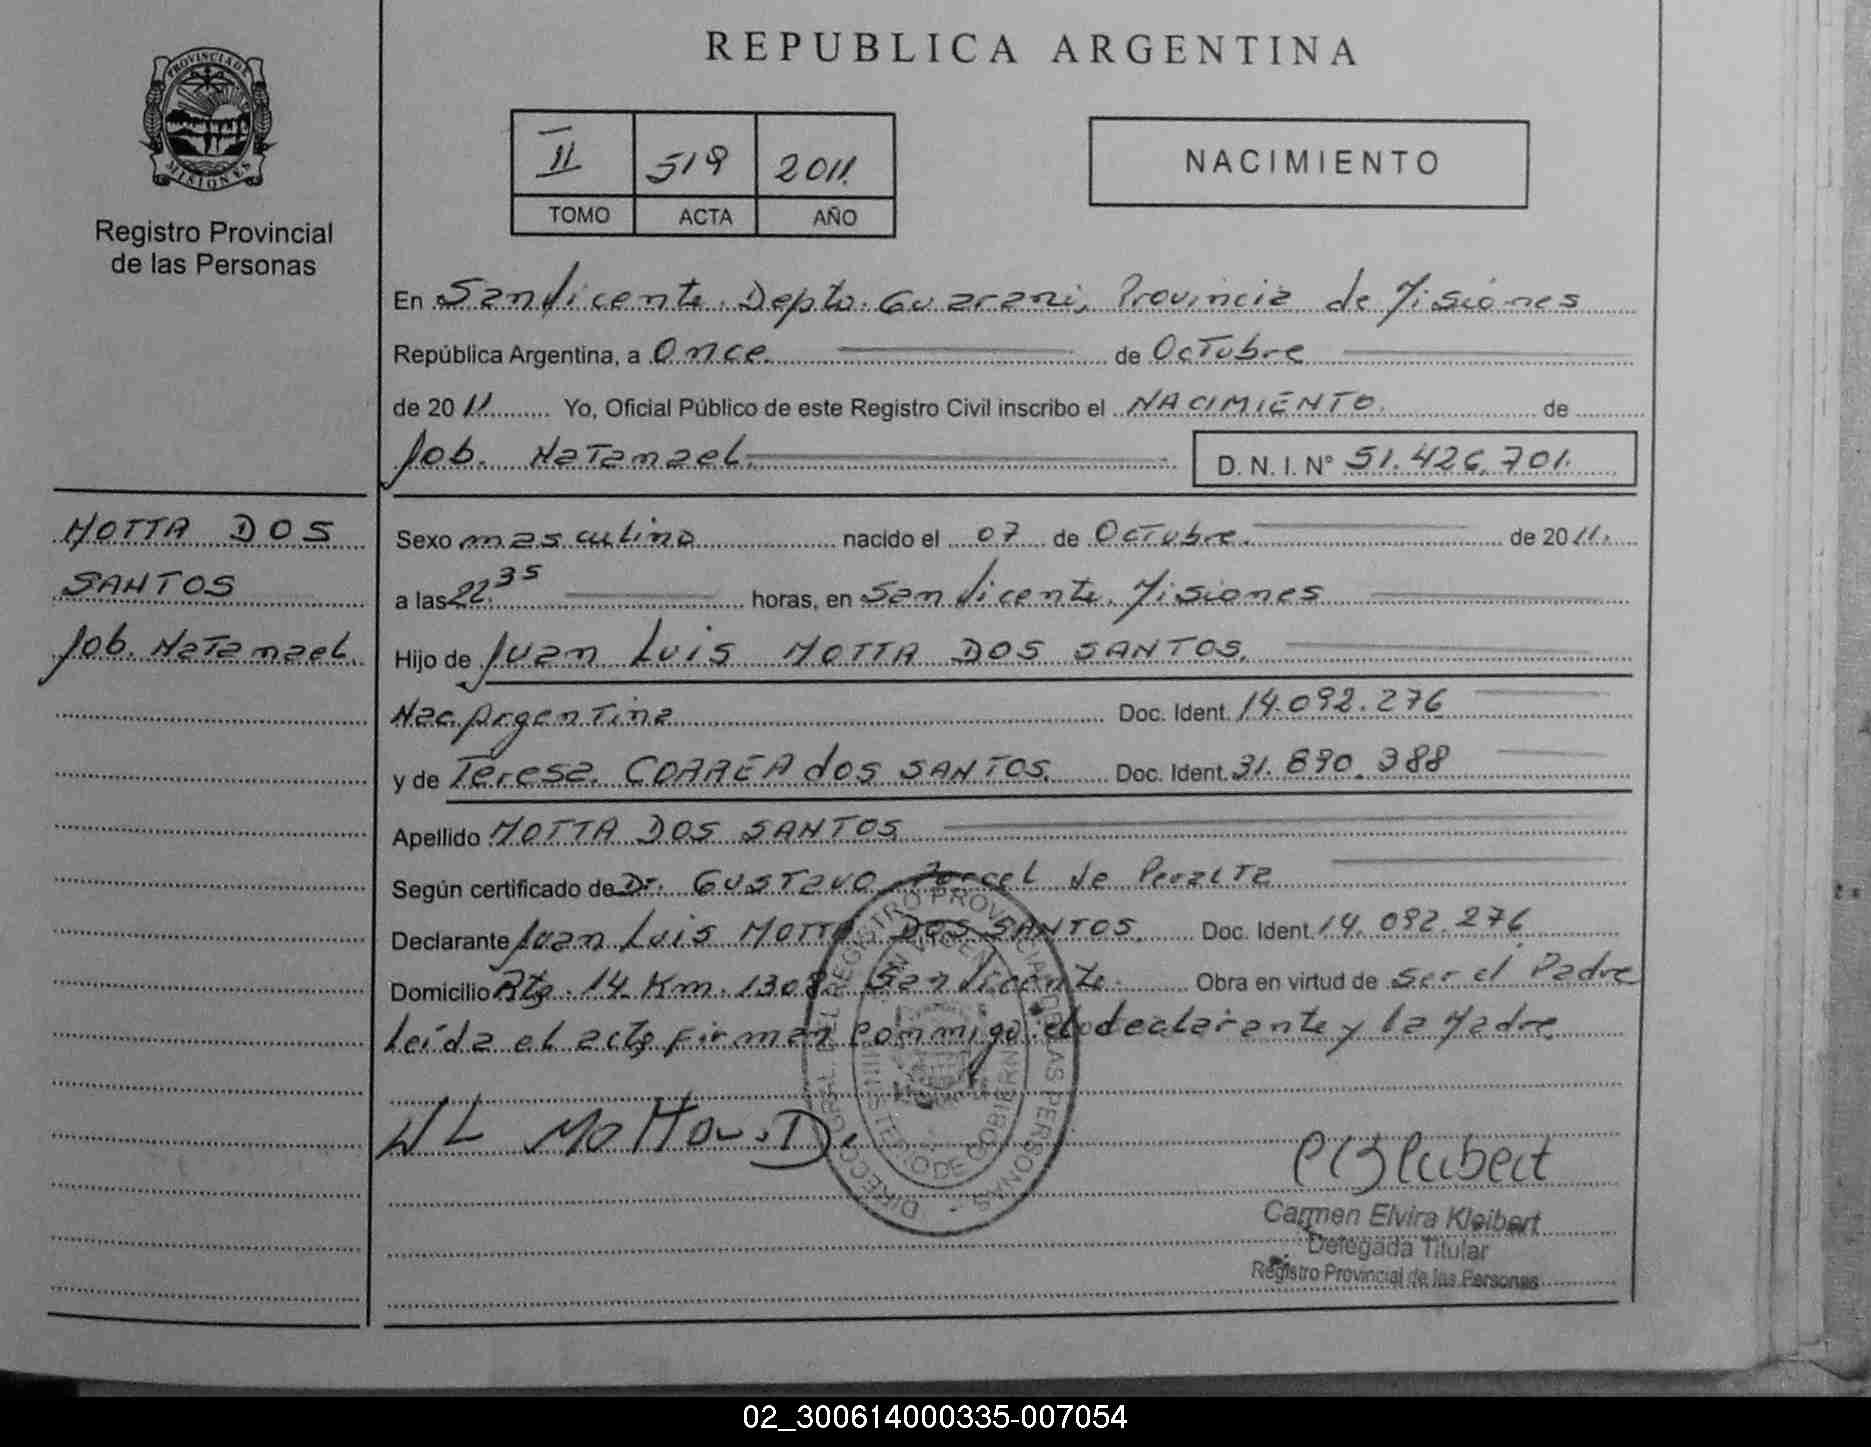 REPUBLICA ARGENTINA
PROVINCIA DE MISIONES
Registro Provincial
de las Personas
II 519 2011
TOMO ACTA AÑO
NACIMIENTO
En San Vicente. Depto. Guaraní, Provincia de Misiones
República Argentina, a Once de Octubre
de 2011 Yo, Oficial Público de este Registro Civil inscribo el NACIMIENTO. de
Job. Natanael. D. N. I. N° 51.426.701.
MOTTA DOS
SANTOS
Job. Natanael.
Sexo masculino nacido el 07 de Octubre. de 2011.
a las 22 35 horas, en San Vicente. Misiones
Hijo de Juan Luis MOTTA DOS SANTOS.
Nac. Argentina Doc. Ident. 14.092.276
y de Teresa. CORREA dos SANTOS. Doc. Ident. 31.690.388
Apellido MOTTA DOS SANTOS
Según certificado de Dr. GUSTAVO de Peralta
Declarante Juan Luis MOTTA DOS SANTOS. Doc. Ident. 14.092.276
Domicilio Rta. 14 Km. 1308. San Vicente. Obra en virtud de ser el Padre
Leída el acta firman conmigo el declarante y la Madre
DIRECC. GRAL. DEL REGISTRO PROVINCIAL DE LAS PERSONAS
MINISTERIO DE GOBIERNO
Carmen Elvira Kleibert
Delegada Titular
Registro Provincial de las Personas
02_300614000335-007054